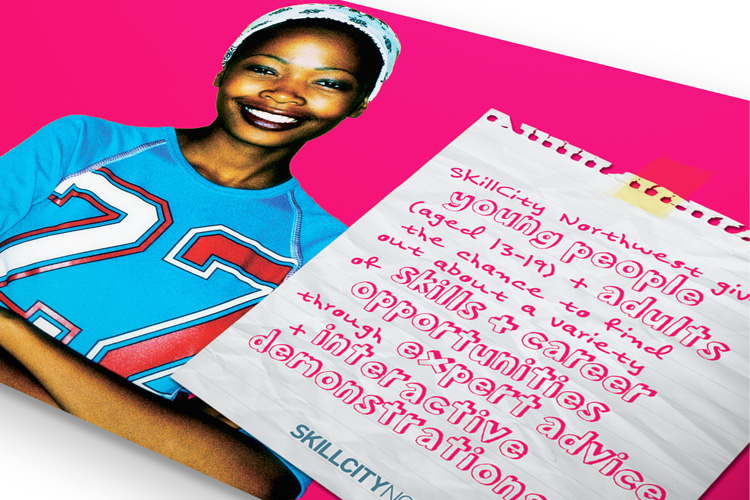 SkillCity Northwest giv
young people
(aged 13-19) + adults
the chance to find
out about a variety
of skills + career
opportunities
through expert advice
+ interactive
demonstrations
SKILLCITYNO